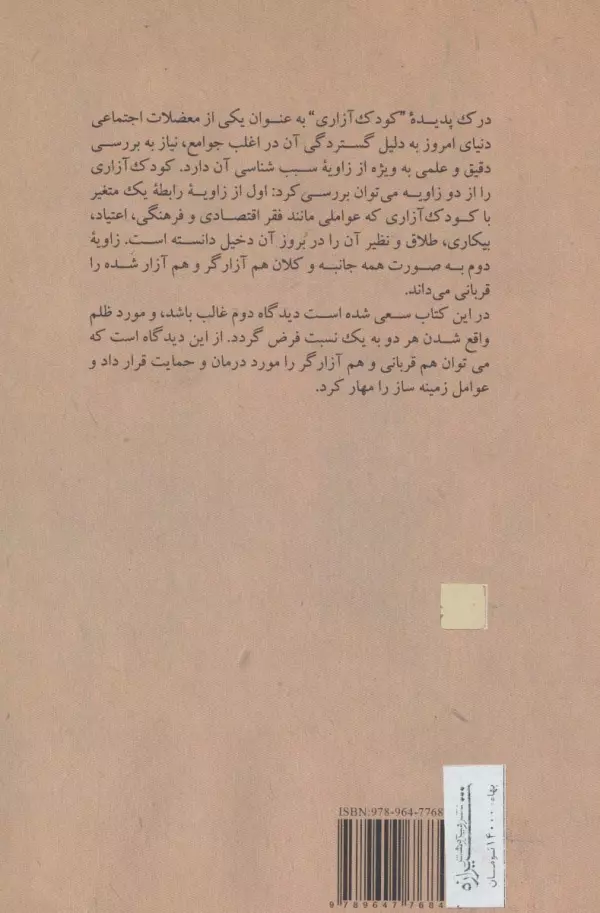 درک پدیدۀ "کودک‌آزاری" به عنوان یکی از معضلات اجتماعی
دنیای امروز به دلیل گستردگی آن در اغلب جوامع، نیاز به بررسی
دقیق و علمی به ویژه از زاویۀ سبب شناسی آن دارد. کودک‌آزاری
را از دو زاویه می‌توان بررسی کرد: اول از زاویۀ رابطۀ یک متغیر
با کودک‌آزاری که عواملی مانند فقر اقتصادی و فرهنگی، اعتیاد،
بیکاری، طلاق و نظیر آن را در بُروز آن دخیل دانسته است. زاویۀ
دوم به صورت همه جانبه و کلان هم آزارگر و هم آزار شده را
قربانی می‌داند.
در این کتاب سعی شده است دیدگاه دوم غالب باشد، و مورد ظلم
واقع شدن هر دو به یک نسبت فرض گردد. از این دیدگاه است که
می توان هم قربانی و هم آزارگر را مورد درمان و حمایت قرار داد و
عوامل زمینه ساز را مهار کرد.
ISBN:978-964-7768
9 789647 7684
بهاء: ۱۴۰۰۰ تومان